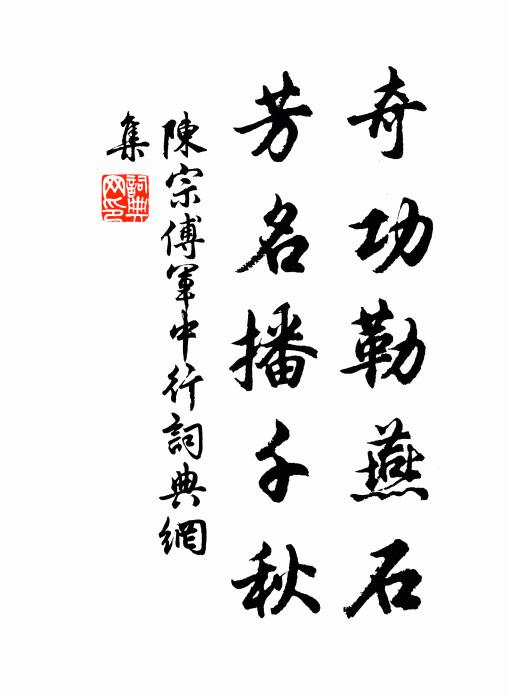 奇功勒燕石
芳名播千秋
陳宗傅軍中行詞典網
集
詞典
网印